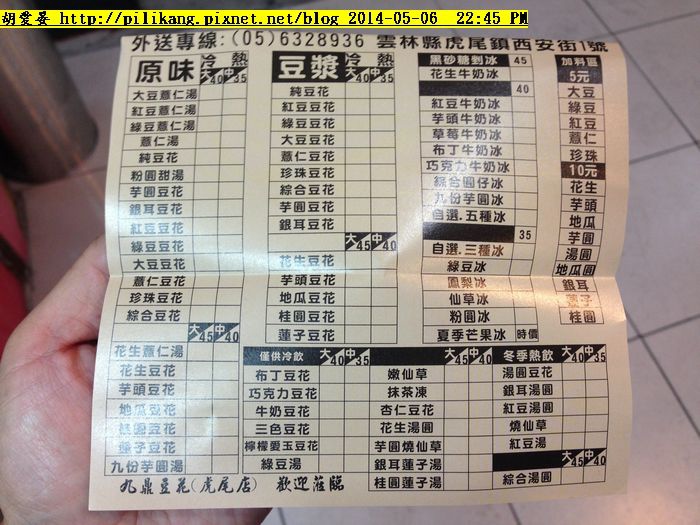 胡愛晏 http://pilikang.pixnet.net/blog 2014-05-06 22:45 PM
外送專線:(05)6328936 雲林縣虎尾鎮西安街1號
原味 冷 熱 大40 中35
大豆薏仁湯
紅豆薏仁湯
綠豆薏仁湯
薏仁湯
純豆花
粉圓甜湯
芋圓豆花
銀耳豆花
紅豆豆花
綠豆豆花
大豆豆花
薏仁豆花
珍珠豆花
綜合豆花
大45 中40
花生薏仁湯
花生豆花
芋頭豆花
地瓜豆花
桂圓豆花
蓮子豆花
九份芋圓湯
豆漿 冷 熱 大40 中35
純豆花
紅豆豆花
綠豆豆花
大豆豆花
薏仁豆花
珍珠豆花
綜合豆花
芋圓豆花
銀耳豆花
大45 中40
花生豆花
芋頭豆花
地瓜豆花
桂圓豆花
蓮子豆花
黑砂糖剉冰 45
花生牛奶冰
40
紅豆牛奶冰
芋頭牛奶冰
草莓牛奶冰
布丁牛奶冰
巧克力牛奶冰
綜合圓仔冰
九份芋圓冰
自選.五種冰
35
自選.三種冰
綠豆冰
鳳梨冰
仙草冰
粉圓冰
夏季芒果冰 時價
加料區
5元
大豆
綠豆
紅豆
薏仁
珍珠
10元
花生
芋頭
地瓜
芋圓
湯圓
地瓜圓
銀耳
蓮子
桂圓
僅供冷飲 大40 中35
布丁豆花
巧克力豆花
牛奶豆花
三色豆花
檸檬愛玉豆花
綠豆湯
大45 中40
嫩仙草
抹茶凍
杏仁豆花
花生湯圓
芋圓燒仙草
銀耳蓮子湯
桂圓蓮子湯
冬季熱飲 大40 中35
湯圓豆花
銀耳湯圓
紅豆湯圓
燒仙草
紅豆湯
大45 中40
綜合湯圓
九鼎豆花(虎尾店) 歡迎蒞臨